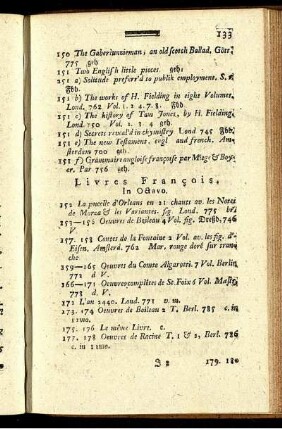 133
150 The Gaberlunzieman; an old scotch Ballad, Göte:
775 geh
151 Two English little pieces geh:
151 a) Solitude preferr'd to publik employment, S. s.
Fbb.
151 b) The works of H. Fielding in eight Volumes,
Lond. 762 Vol. 1. 2 4. 7. 8. Fbb.
151 c) The history of Tom Jones, by H. Fielding,
Lond. 750 Vol. 1. 3. 4 geh.
151 d) Secrets reveal'd in chymistry Lond 745 Fbb;
151 e) The new Testament, engl. and french. Am-
sterdem 700 geh
151 f) Grammaire angloise françoise par Miege & Boy-
er. Par 756 geh.
Livres François,
In Octavo.
152 La pucelle d'Orleans en 21 chants av. les Notes
de Morza & les Variantes. fig. Lond. 775 br)
153—156 Oeuvres de Boileau 4 Vol. fig. Dresd. 746
V.
157. 158 Contes de la Fontaine 2 Vol av. les fig. d'-
Eisen. Amsterd. 762 Mar. rouge doré sur tran-
che
159—165 Oeuvres du Comte Algarotti. 7 Vol. Berlin
772 d V.
166—171 Oeuvres complètes de St. Foix 6 Vol Mastr.
778 d. V.
172 L'an 2440. Lond. 771 v. m.
173. 174 Oeuvres de Boileau 2 T, Berl. 785 c. in
12mo.
175. 176 Le même Livre. c.
177. 178 Oeuvres de Racine T. 1 & 2, Berl. 786
c. in 12mo.
179. 180